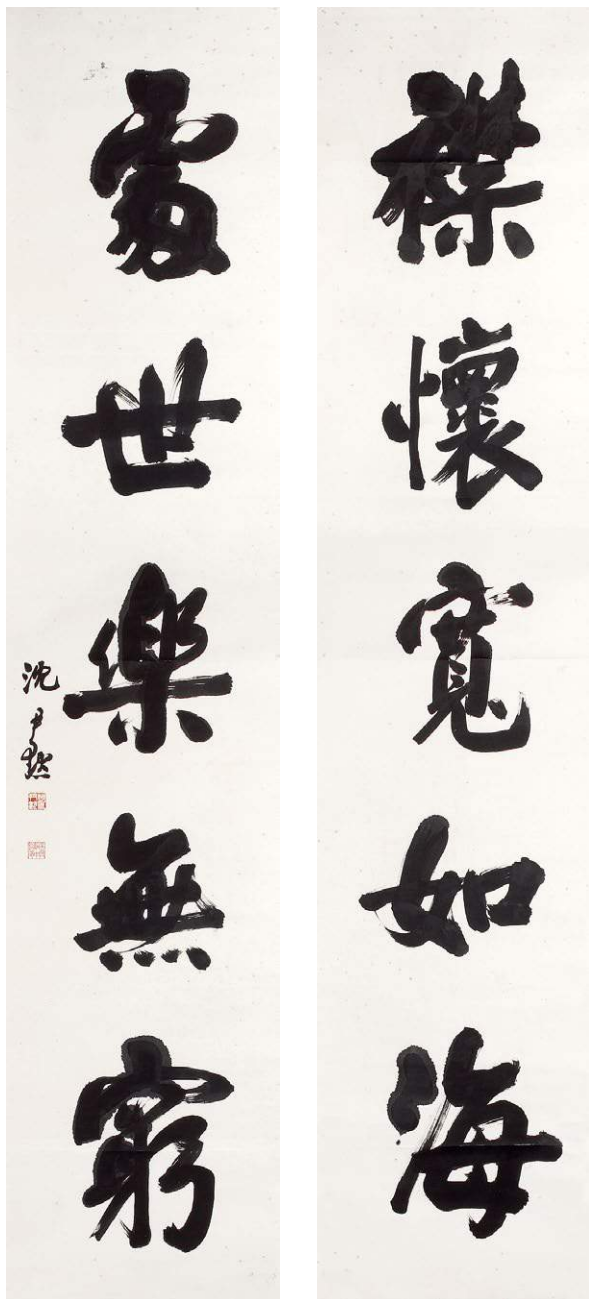 襟懷寬如海
處世樂無窮
沈尹默